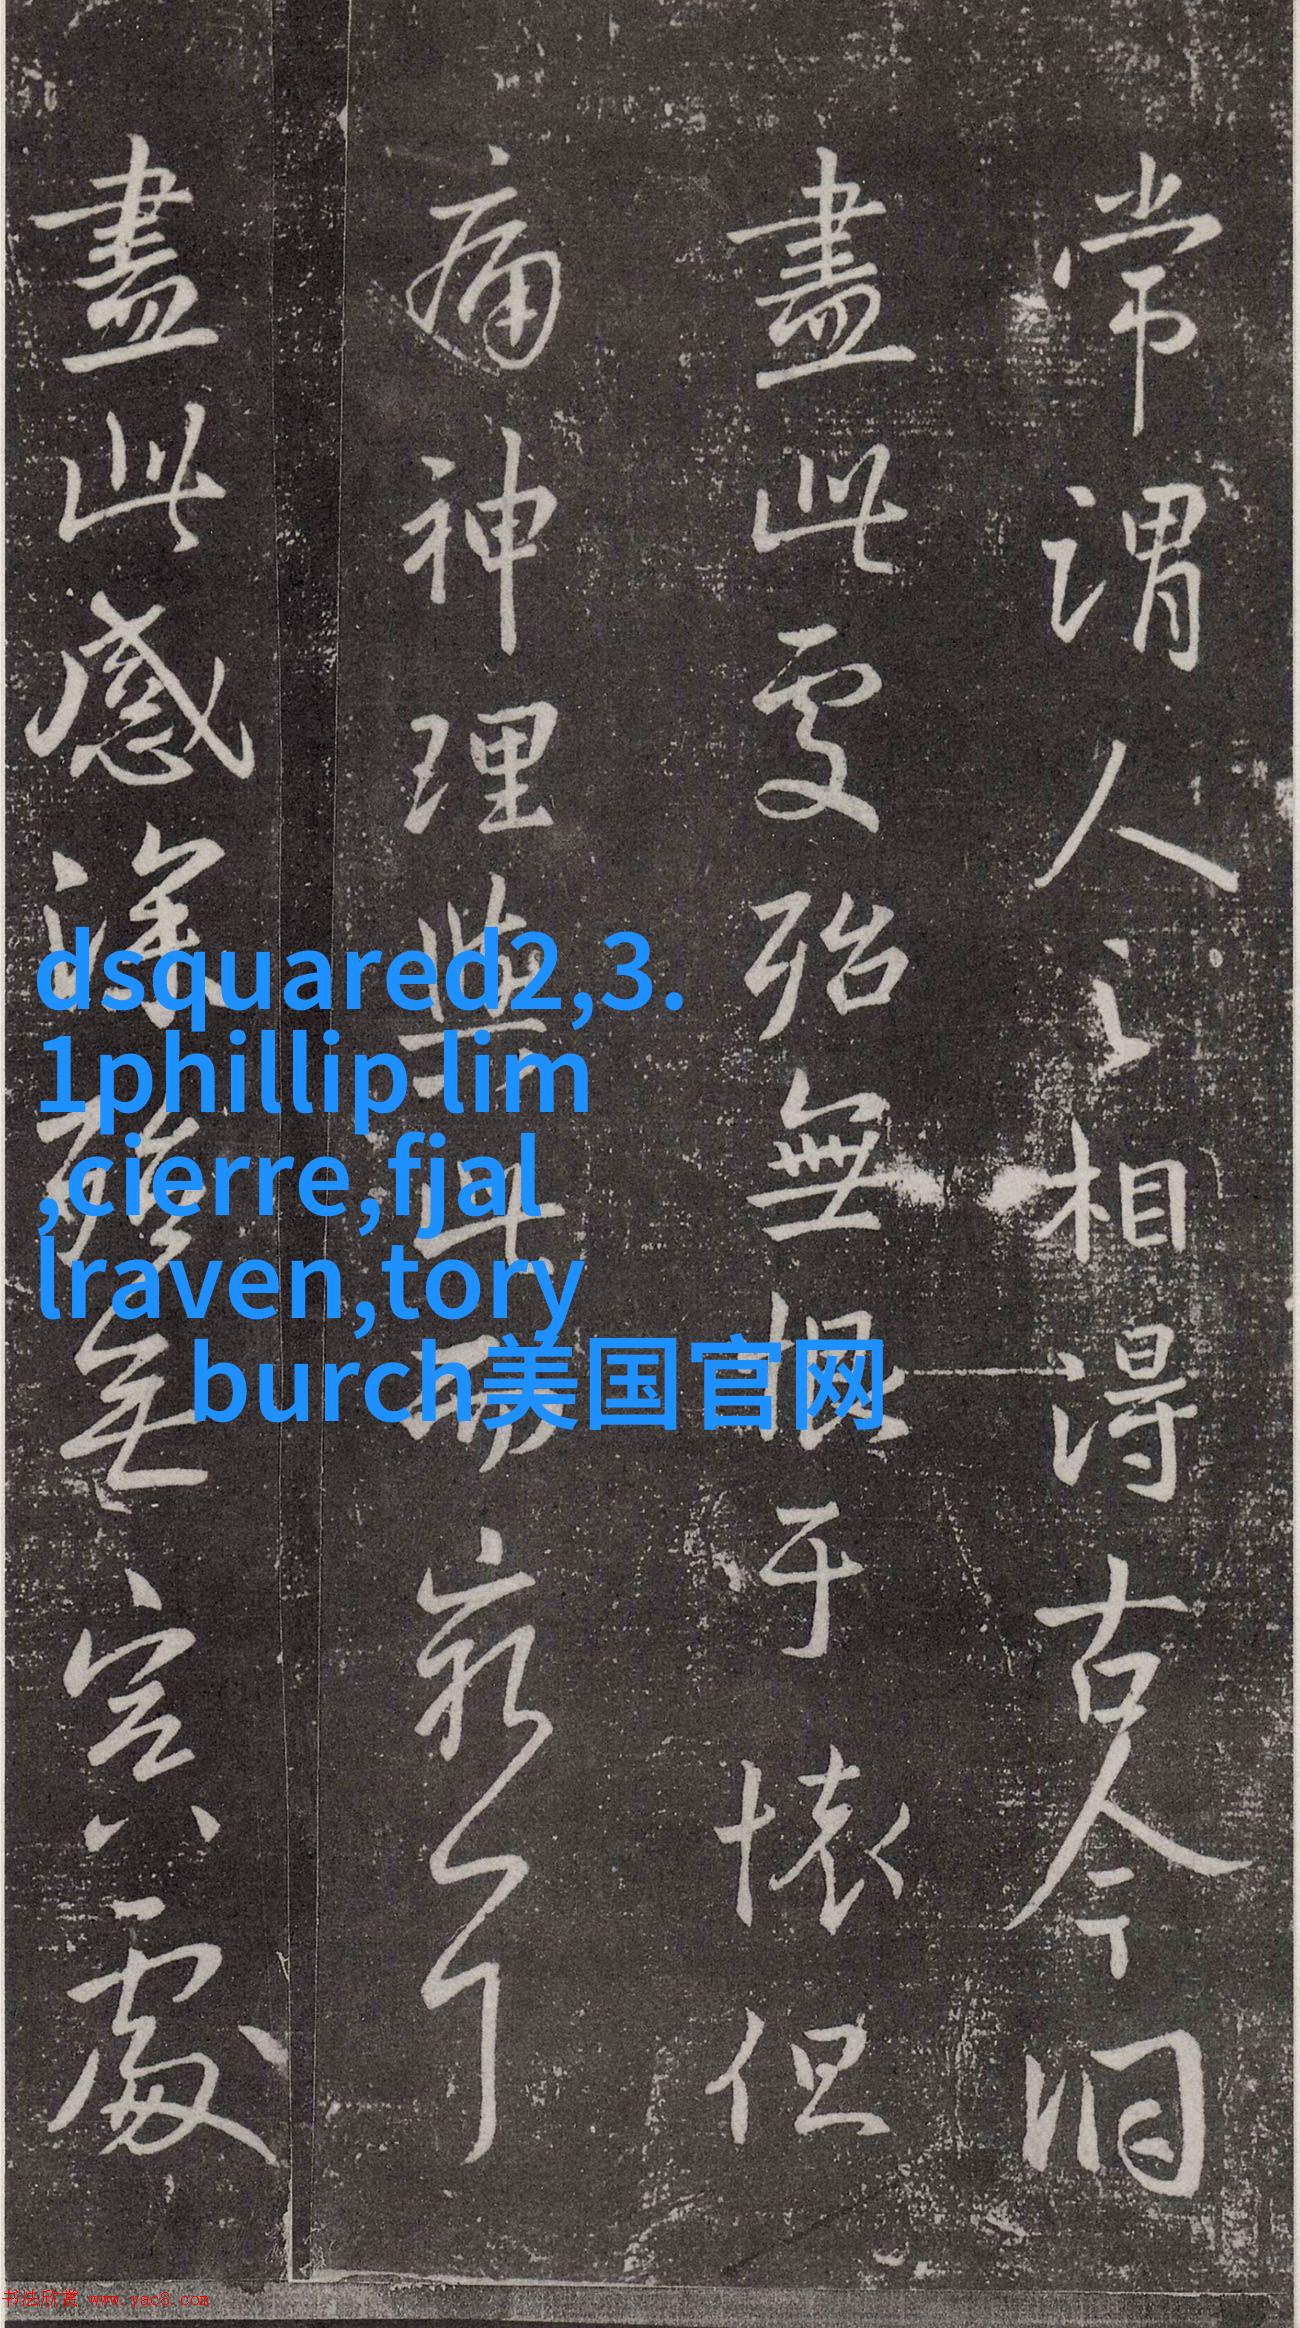 常謂人之相得古今洞
盡此處殆無恨于懷但
痛神理與此而窮耳
盡此感深殆無冥處
dsquared2,3.
1phillip lim
,cierre,fjal
lraven,tory
burch美国官网
书法欣赏 www.yac8.com